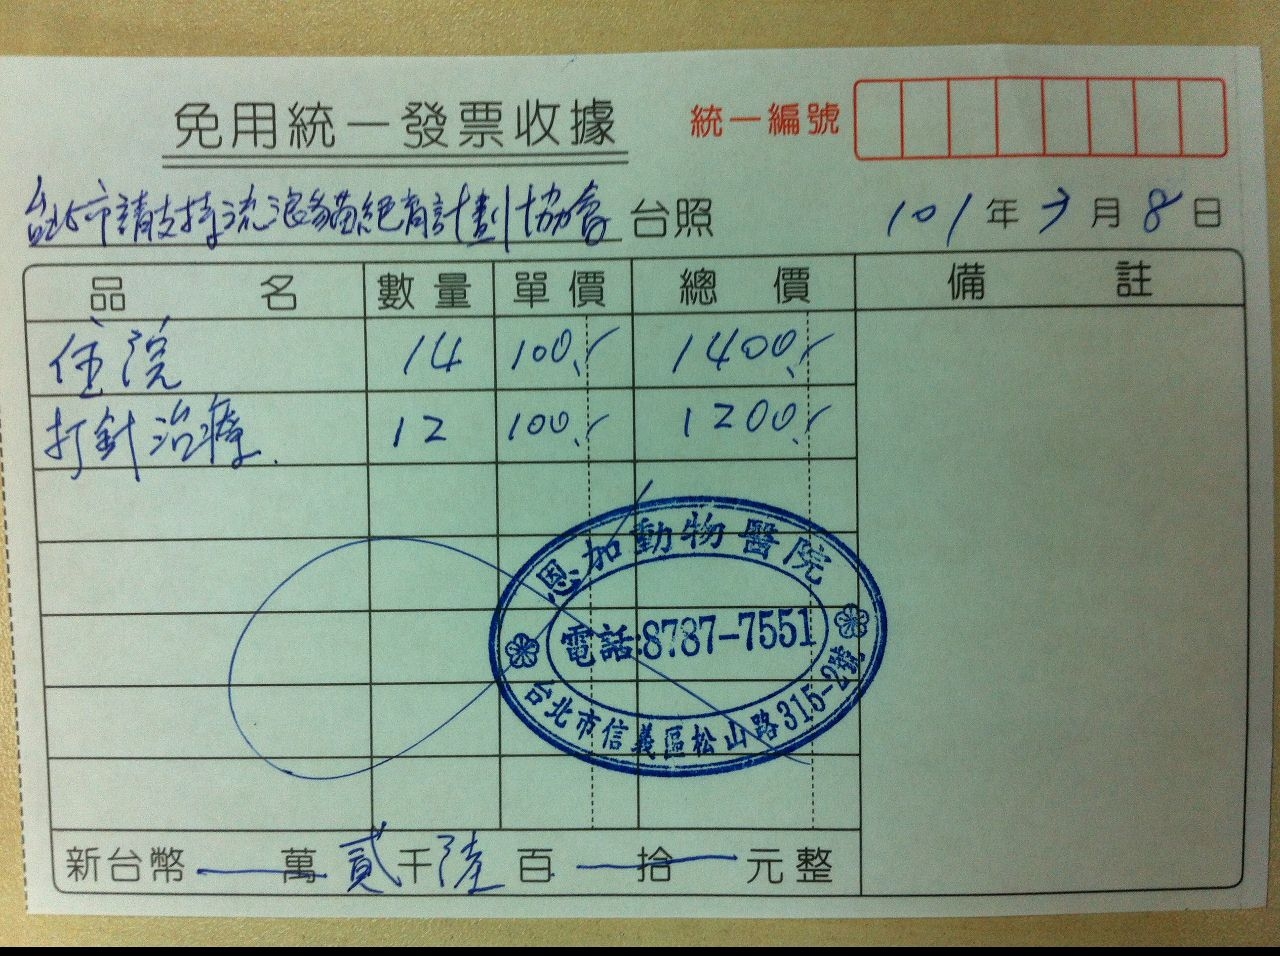 免用統一發票收據
統一編號
台北市請支持流浪貓絕育計劃協會 台照
101年3月8日
品名 數量 單價 總價 備註
住院 14 100.- 1400.-
打針治療. 12 100.- 1200.-
恩加動物醫院
電話:8787-7551
台北市信義區松山路315-2號
新台幣 — 萬 貳千陸百 — 拾 元整